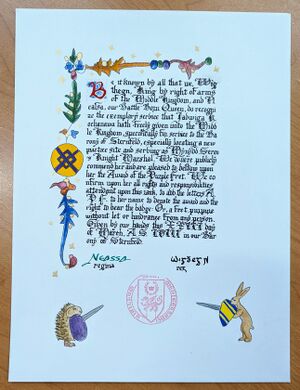 Be it known by all that we, Wig
thegn, King by right of arms
of the Middle Kingdom, and N
ealsa, our Battle Born Queen, do recogni
ze the exemplary service that Jadwiga K
ochanova hath freely given unto the Midd
le Kingdom, specifically his service to the Ba
rony of Sternfeld, especially locating a new
practice site and serving as
Knight Marshal. We where publicly
commend her and are pleased to bestow upon
her the Award of the Purple Fret. We co
nfirm upon her all rights and responsibilities
attendant upon this rank, to add the letters A
P.F. to her name to denote the award and the
right to bear the badge: Or, a fret purpure
without let or hindrance from any person.
Given by our hands this day
of March, A.S. in our Bar
ony of Sternfeld.
Neassa
regina
rex